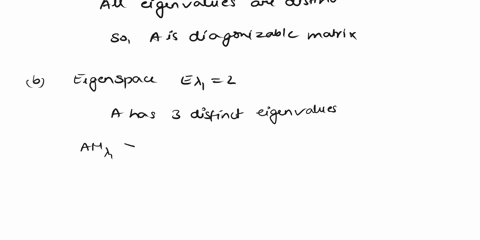 All eigenvalues are distinc
So, A is diagonizable matrix
(b) Eigenspace Eλ₁ = 2
A has 3 distinct eigenvalues
AMλ₁